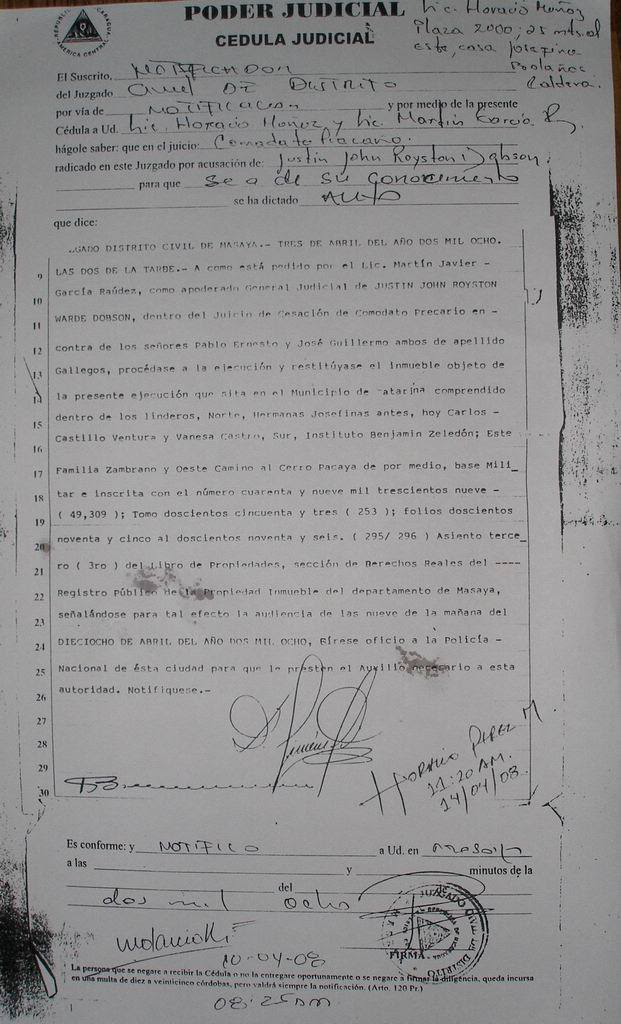 PODER JUDICIAL
CEDULA JUDICIAL
Lic. Horacio Muñoz
Plaza 2000, 25 mts. al
este, casa Josefina
Bolaños
Caldera.
REPUBLICA DE NICARAGUA
AMERICA CENTRAL
El Suscrito, NOTIFICADOR
del Juzgado Civil DE DISTRITO
por vía de NOTIFICACION y por medio de la presente
Cédula a Ud. Lic. Horacio Muñoz y Lic. Martín García R,
hágole saber: que en el juicio: Comodato Precario.
radicado en este Juzgado por acusación de: Justin John Royston Dobson.
para que sea de su conocimiento
se ha dictado AUTO
que dice:
GADO DISTRITO CIVIL DE MASAYA.- TRES DE ABRIL DEL AÑO DOS MIL OCHO.
9 LAS DOS DE LA TARDE.- A como está pedido por el Lic. Martín Javier -
10 García Raúdez, como apoderado General Judicial de JUSTIN JOHN ROYSTON
11 WARDE DOBSON, dentro del Juicio de Cesación de Comodato Precario en -
12 contra de los señores Pablo Ernesto y José Guillermo ambos de apellido
13 Gallegos, procédase a la ejecución y restitúyase el inmueble objeto de
14 la presente ejecución que sita en el Municipio de Catarina comprendido
15 dentro de los linderos, Norte, Hermanas Josefinas antes, hoy Carlos -
16 Castillo Ventura y Vanesa Castro, Sur, Instituto Benjamin Zeledón; Este
17 Familia Zambrano y Oeste Camino al Cerro Pacaya de por medio, base Mili_
18 tar e inscrita con el número cuarenta y nueve mil trescientos nueve -
19 ( 49,309 ); Tomo doscientos cincuenta y tres ( 253 ); folios doscientos
20 noventa y cinco al doscientos noventa y seis. ( 295/ 296 ) Asiento terce_
21 ro ( 3ro ) del Libro de Propiedades, sección de Derechos Reales del ----
22 Registro Público de la Propiedad Inmueble del departamento de Masaya,
23 señalándose para tal efecto la audiencia de las nueve de la mañana del
24 DIECIOCHO DE ABRIL DEL AÑO DOS MIL OCHO, Gírese oficio a la Policía -
25 Nacional de ésta ciudad para que le presten el Auxilio necesario a esta
26 autoridad. Notifíquese.-
27
28
29
30
HORACIO PEREZ M
11:20 AM.
14/04/08.
Es conforme: y NOTIFICO a Ud. en Masaya
a las y minutos de la
del
dos mil ocho
FIRMA
JUZGADO CIVIL DE DISTRITO
10-04-08
La persona que se negare a recibir la Cédula o no la entregare oportunamente o se negare a firmar la diligencia, queda incursa
en una multa de diez a veinticinco córdobas, pero valdrá siempre la notificación. (Arto. 120 Pr.)
08:25am